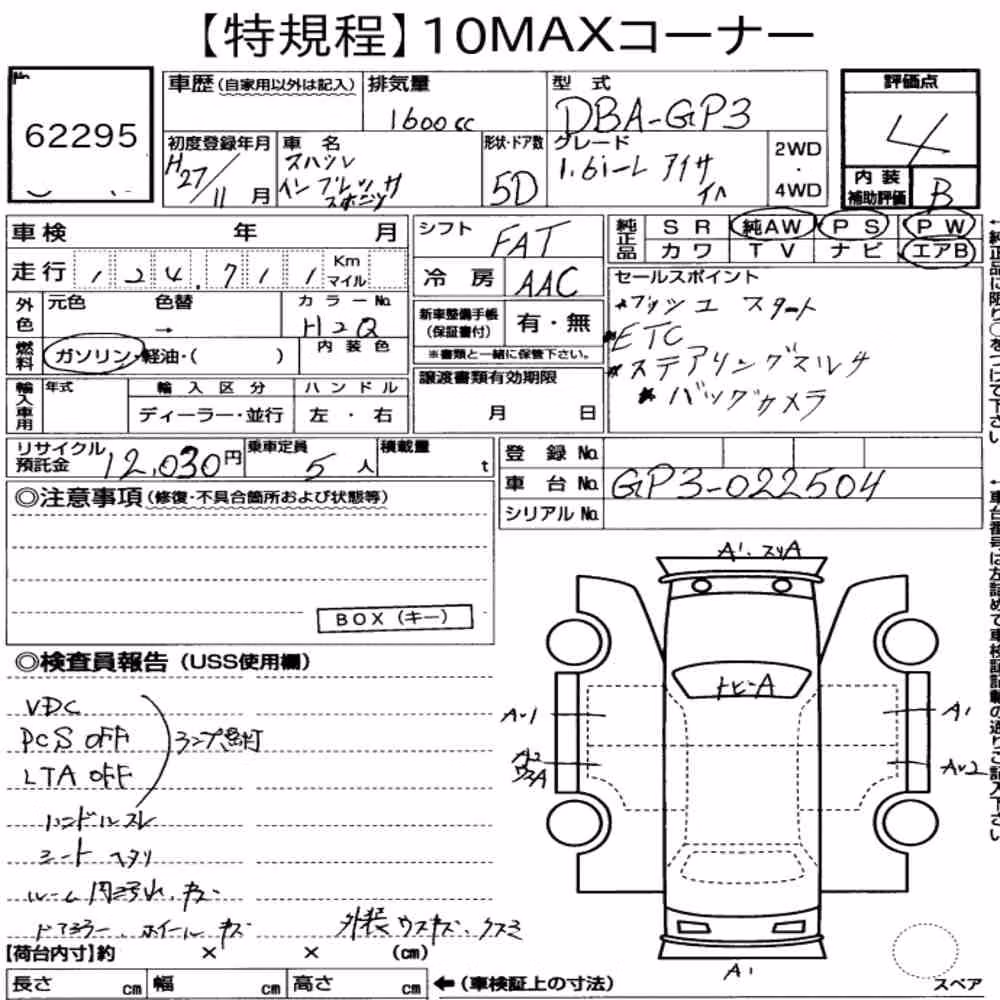 【特規程】10MAXコーナー
No.
62295
車歴(自家用以外は記入)
排気量
1600cc
型式
DBA-GP3
評価点
4
初度登録年月
H27/11月
車名
インプレッサ
スポーツ
形状・ドア数
5D
グレード
1.6i-L アイサイト
2WD
・
4WD
内装
補助評価
B
車検 年 月
走行 124,711 Km
マイル
シフト FAT
冷房 AAC
純正品
SR 純AW PS PW
カワ TV ナビ エアB
外色 元色 色替 → カラーNo. H2Q
燃料 ガソリン・軽油・( ) 内装色
新車整備手帳
(保証書付) 有・無
※書類と一緒に保管下さい。
セールスポイント
*プッシュスタート
*ETC
*ステアリングスルチ
*バックカメラ
輸入車用 年式 輸入区分 ハンドル
ディーラー・並行 左・右
譲渡書類有効期限
月 日
リサイクル
預託金 12,030円
乗車定員 5人
積載量 t
登録No.
車台No. GP3-022504
シリアルNo.
◎注意事項(修復・不具合箇所および状態等)
BOX(キー)
◎検査員報告(USS使用欄)
VDC
PCS OFF ランプ点灯
LTA OFF
ハンドルスレ
シートヘタリ
ルーム内汚れ、キズ
ドアミラー、ホイールキズ
外装ウスキズ、クスミ
A1.スリA
トビーA
A1
A2
A1
スペア
【荷台内寸】約 × × (cm)
長さ cm 幅 cm 高さ cm ←(車検証上の寸法)
←純正品に限り○をつけて下さい
←車台番号は左詰めで車検証記載の通りご記入下さい